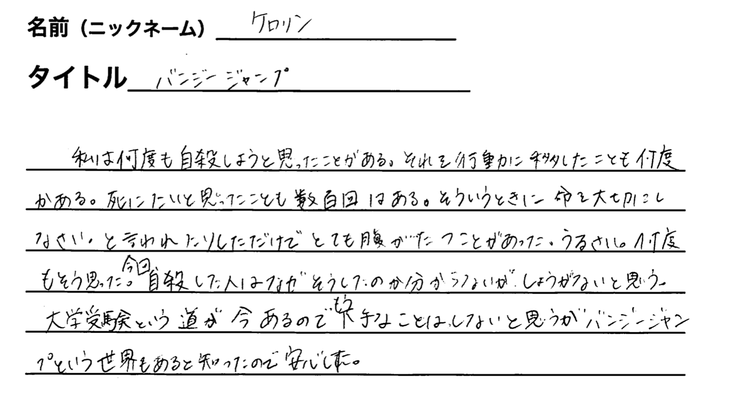 名前（ニックネーム） ケロリン
タイトル バンジージャンプ
私は何度も自殺しようと思ったことがある。それを行動に移したことも何度
かある。死にたいと思ったことも数百回はある。そういうときに命を大切にし
なさい。と言われたりしただけでとても腹がたつことがあった。うるさい。何度
もそう思った。今回自殺した人はなぜそうしたのか分からないが、しょうがないと思う。
大学受験という道が今あるのでもう下手なことはしないと思うがバンジージャン
プという世界もあると知ったので安心した。